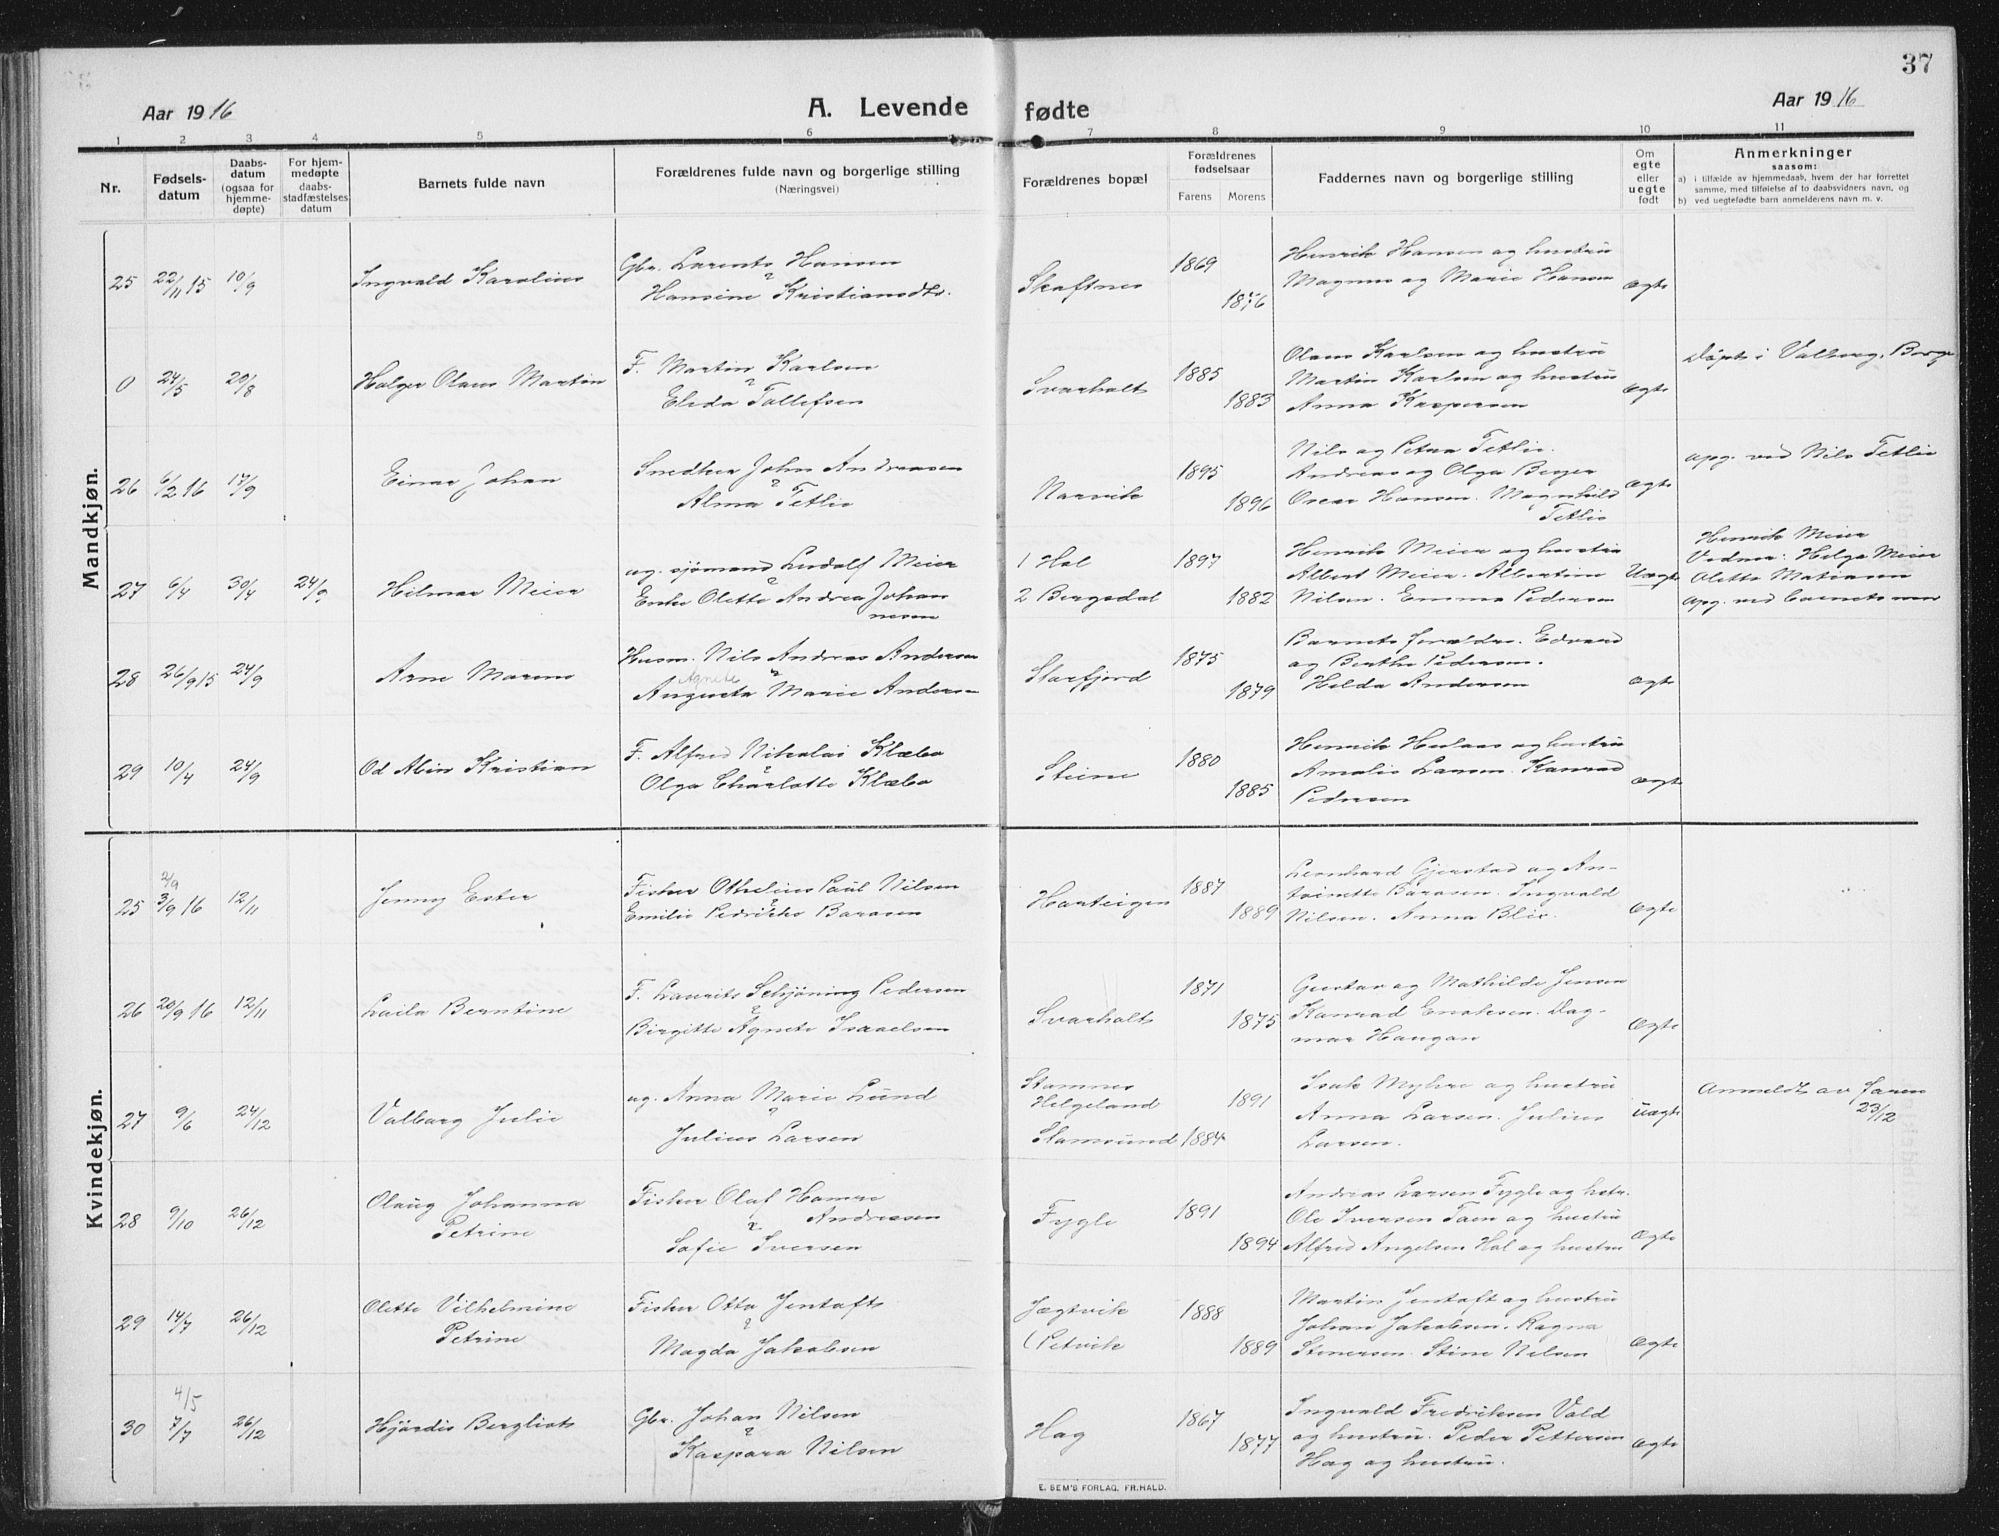 37
Aar 1916
A. Levende fødte
Aar 1916
1 2 3 4 5 6 7 8 9 10 11
Nr.
Fødsels-
datum
Daabs-
datum
(ogsaa for
hjemme-
døpte)
For hjem-
medøpte
daabs-
stadfæstelses
datum
Barnets fulde navn
Forældrenes fulde navn og borgerlige stilling
(Næringsvei)
Forældrenes bopæl
Forældrenes
fødselsaar
Farens Morens
Faddernes navn og borgerlige stilling
Om
egte
eller
uegte
født
Anmerkninger
saasom:
a) i tilfælde av hjemmedaab, hvem der har forrettet
samme, med tilføielse af to daabsvidners navn, og
b) ved uegtefødte barn anmelderens navn m. v.
Mandkjøn.
25 22/11 15 10/9 Ingvald Karolius
Gbr. Lorents Hansen
Hansine Kristiansdtr.
Skaftnes 1869 1876
Henrik Hansen og hustru
Magnus og Marie Hansen
Ægte
0 24/5 20/8 Holger Olaus Martin
F. Martin Karlsen
Elida Tollefsen
Svarholt 1885 1883
Olaus Karlsen og hustru
Martin Karlsen og hustru
Anna Kaspersen
Ægte
Døpt i Valberg, Borge
26 6/2 16 17/9 Einar Johan
Snedker John Andreasen
Alma Tetlie
Narvik 1895 1896
Nils og Petra Tetlie.
Andreas og Olga Berger
Oscar Hansen. Magnhild
Tetlie
Ægte
opg. ved Nils Tetlie
27 6/4 30/4 24/9 Hilmar Meier
ug. sjømand Ludolf Meier
Enke Olette Andrea Johan
nesen
1 Hol
2 Bergsdal
1897 1882
Henrik Meier og hustru
Albert Meier. Albertine
Nilsen. Emma Pedersen
Uægte
Henrik Meier
Vidner: Helga Meier
Olette Matiasen
opg. ved barnets mor
28 26/9 15 24/9 Arne Mareno
Husm. Nils Andreas Andersen
Agnete
Augusta Marie Andersen
Storfjord 1875 1879
Barnets forældre. Edvard
og Berthe Pedersen.
Hilda Andersen
Ægte
29 10/4 24/9 Od Abin Kristian
F. Alfred Nikolai Klæbo
Olga Charlotte Klæbo
Steine 1880 1885
Henrik Hulaas og hustru
Amalie Larsen. Konrad
Pedersen
Ægte
Kvindekjøn.
2/9
25 3/9 16 12/11 Jenny Ester
Fisker Othelius Paul Nilsen
Emilie Pedrikke Barasen
Harteigen 1887 1889
Leonhard Gjerstad og An-
toinette Barasen. Ingvald
Nilsen. Anna Blix.
Ægte
26 20/9 16 12/11 Laila Berntine
F. Laurits Schjøning Pedersen
Birgitte Agnete Isaaelsen
Svarholt 1871 1875
Gustav og Mathilde Jensen
Konrad Enoksen. Dag-
mar Haugan
Ægte
27 9/6 24/12 Valborg Julie
ug. Anna Marie Lund
Julius Larsen
Stamnes
Helgeland
Stamsund
1891 1884
Isak Myhre og hustru
Anna Larsen. Julius
Larsen.
Uægte
Anmeldt av faren
23/12
28 9/10 26/12 Olaug Johanna
Petrine
Fisker Olaf Hamre
Andresen
Sofie Iversen
Fygle 1891 1894
Andreas Larsen Fygle og hstr.
Ole Iversen Taen og hustru
Alfred Angelsen Hol og hustru
Ægte
29 14/7 26/12 Olette Vilhelmine
Petrine
Fisker Otto Jentoft
Magda Jakobsen
Jægtvik
(Petvik
1888 1889
Martin Jentoft og hustru
Johan Jakobsen. Ragna
Stenersen. Stine Nilsen
Ægte
4/5
30 7/7 26/12 Hjørdis Bergliot
Gbr. Johan Nilsen
Kaspara Nilsen
Hag 1867 1877
Ingvald Fredriksen Vold
og hustru. Peder Pettersen
Hag og hustru.
Ægte
E. SEM'S FORLAG, FR.HALD.